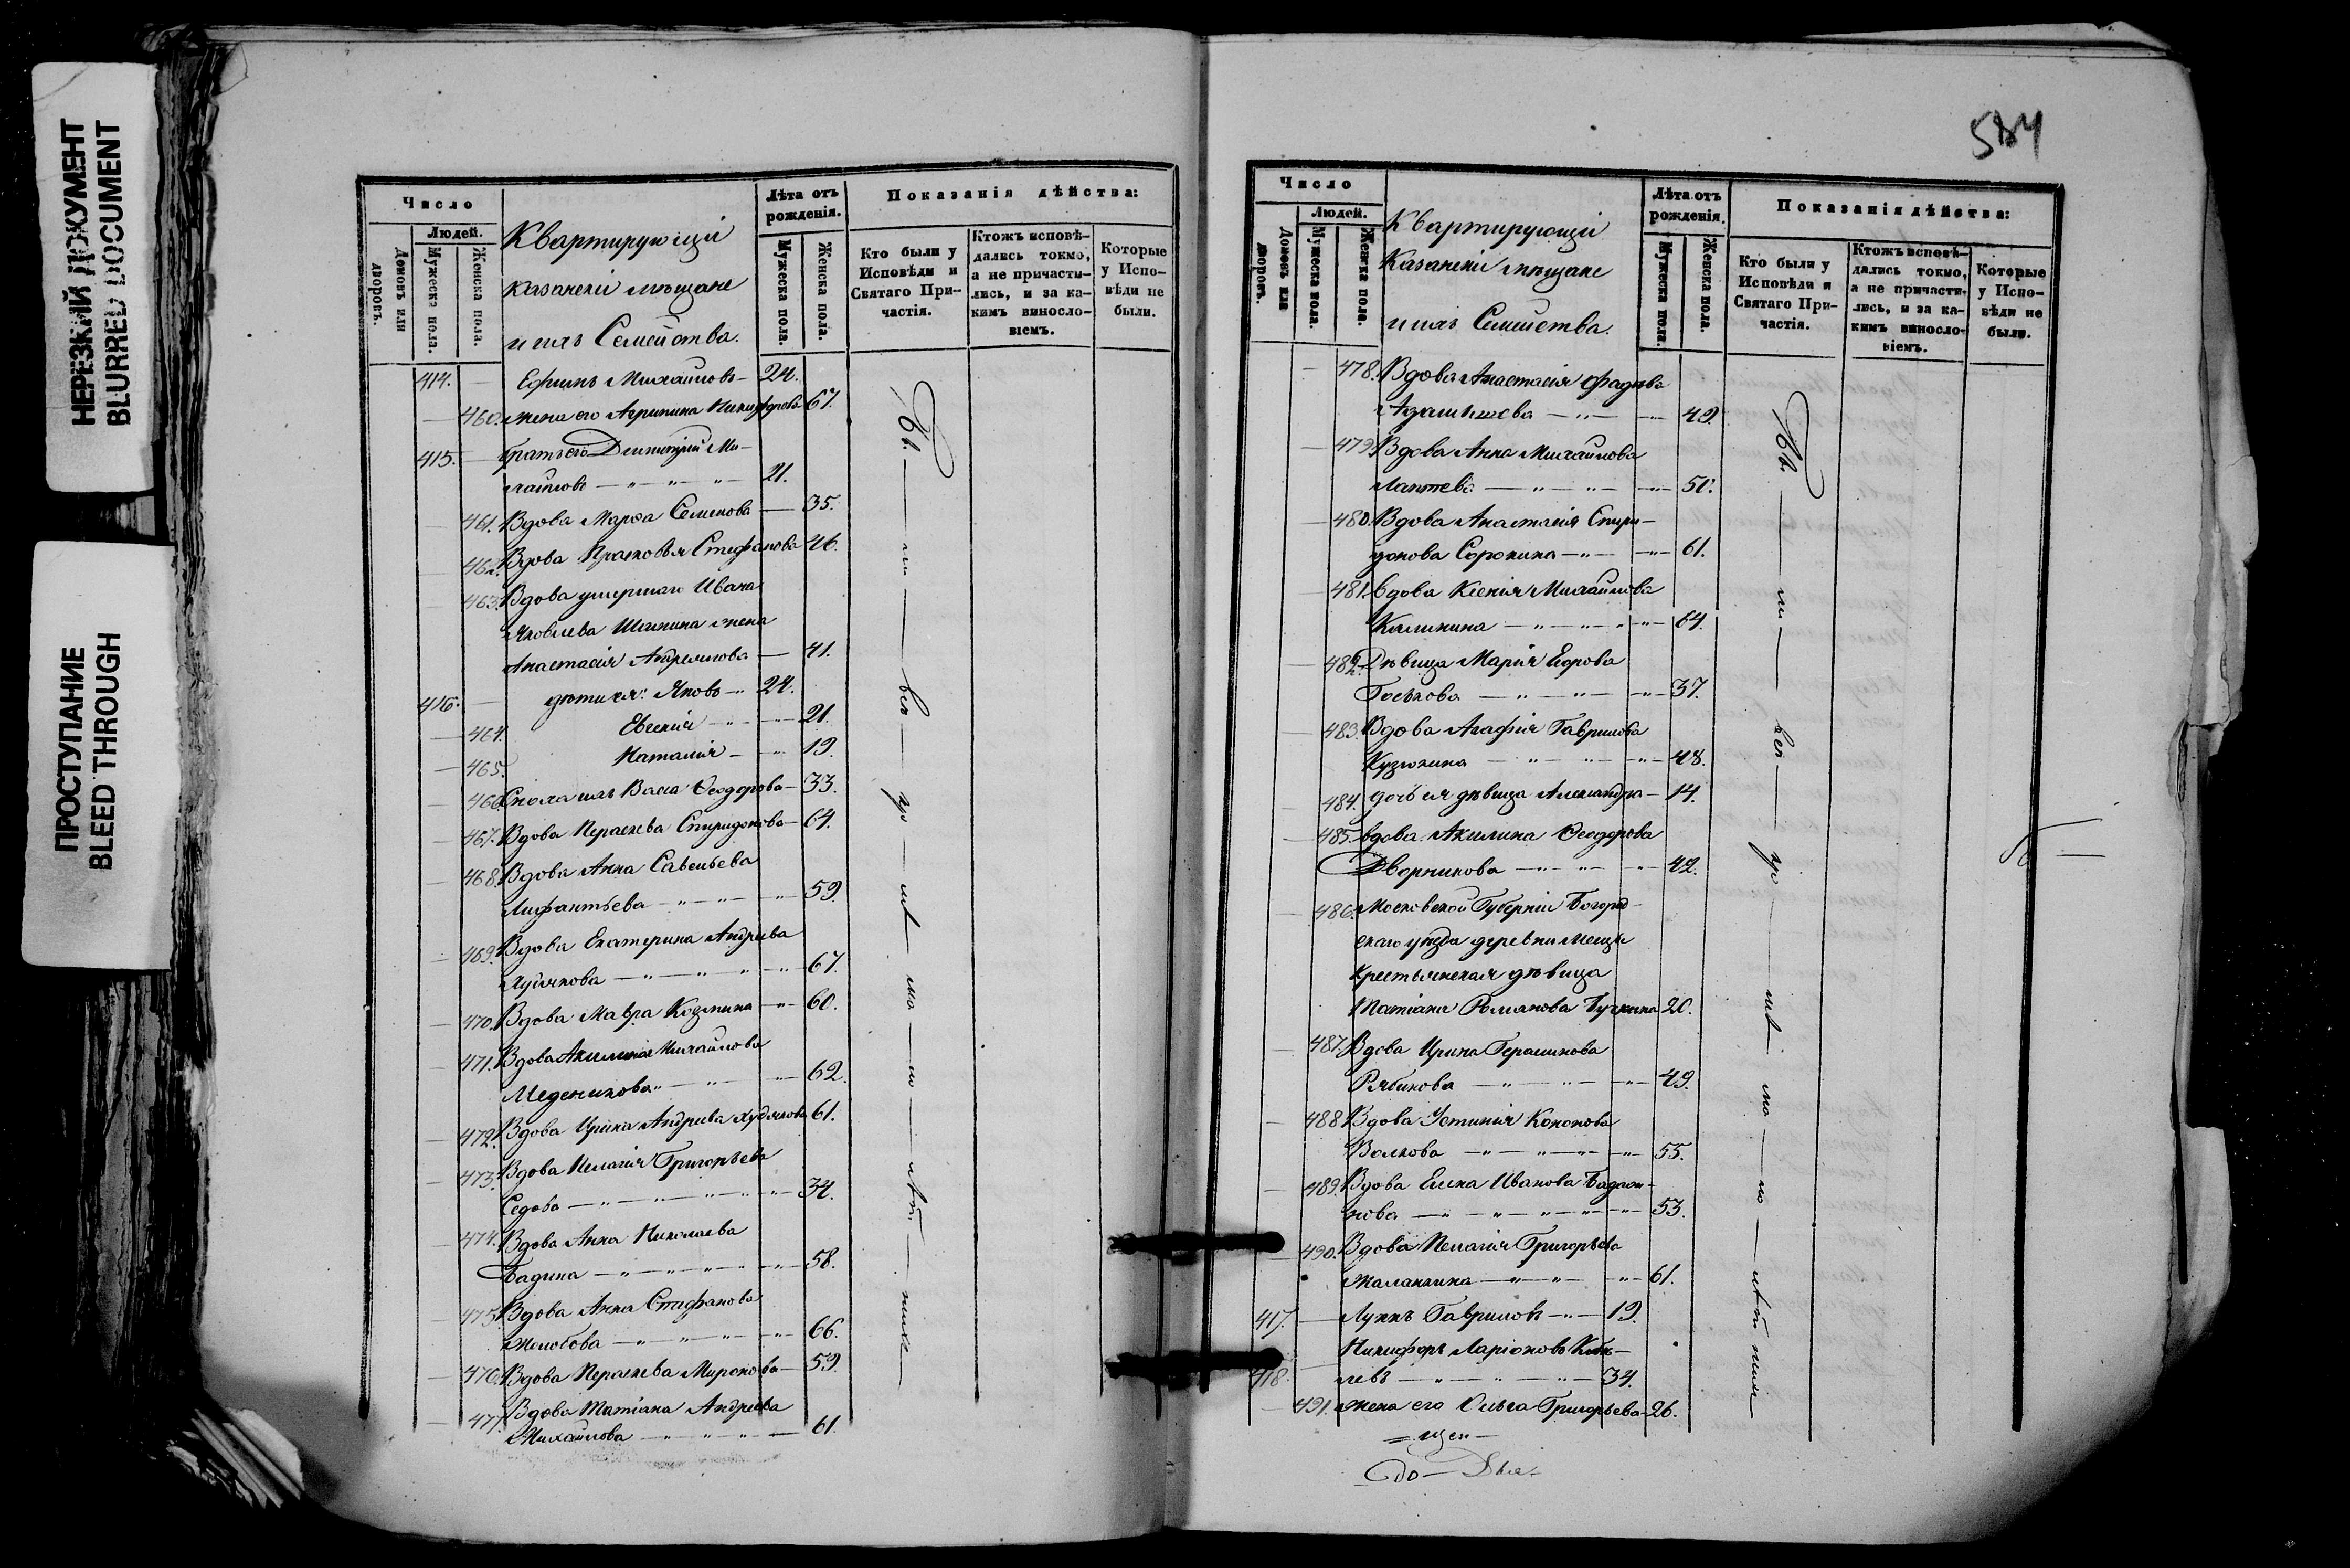 НЕРЕЗКИЙ ДОКУМЕНТ
BLURRED DOCUMENT
ПРОСТУПАНИЕ
BLEED THROUGH
Число
Людей.
Домовъ или дворовъ.
Мужеска пола.
Женска пола.
Квартирующіи
казанскіи мѣщане
и ихъ Семейства.
Лѣта отъ рожденія.
Мужеска пола.
Женска пола.
Показанія дѣйства:
Кто были у Исповѣди и Святаго Причастія.
Ктожъ исповѣдались токмо, а не причастились, и за какимъ винословіемъ.
Которые у Исповѣди не были.
414. — Ефимъ Михаиловъ — 24.
— 460. жена его Агрипина Никифорова 67.
415. — братъ его Димитрий Ми-
хаиловъ — " — " — " — 21.
— 461. Вдова Марѳа Семенова — 35.
— 462. Вдова Прасковья Стефанова 46.
— 463. Вдова умершаго Ивана
Яковлева жена
Анастасія — 41.
416. — дѣти ея: Яковъ — " 24.
— 464. Евгенія — " — 21.
— 465. Наталія — " 19.
— 466. Сноха ихъ Васса Ѳеодорова — 33.
— 467. Вдова Параскева Спиридонова — 64.
— 468. Вдова Анна Савельева
Лифантьева — " — " — 59.
— 469. Вдова Екатерина Андреева
— " — " — 67.
— 470. Вдова Мавра Козмина — " — 60.
— 471. Вдова Акилина Михаилова
Меденикова " — " — 62.
— 472. Вдова Ирина Андреева Худякова 61.
— 473. Вдова Пелагія Григорьева
Седова — " — " — " — 34.
— 474. Вдова Анна Николаева
Бадина — " — " — " — 58.
— 475. Вдова Анна Стефанова
Желобова — " — " — " — 66.
— 476. Вдова Параскева Миронова — 59.
— 477. Вдова Татіана Андреева
Михаилова — " — " — " — 61.
584
Число
Людей.
Домовъ или дворовъ.
Мужеска пола.
Женска пола.
Квартирующіи
Казанскіи мѣщане
и ихъ Семейства.
Лѣта отъ рожденія.
Мужеска пола.
Женска пола.
Показанія дѣйства:
Кто были у Исповѣди и Святаго Причастія.
Ктожъ исповѣдались токмо, а не причастились, и за какимъ винословіемъ.
Которые у Исповѣди не были.
— 478. Вдова Анастасія Фадѣева
— " — 49.
— 479. Вдова Анна Михаилова
Лаптева — " — " — 51.
— 480. Вдова Анастасія Спири-
донова Сорокина — " — " — 61.
— 481. Вдова Ксенія Михаилова
Калинина — " — " — " — 64.
— 482. Дѣвица Марія Егорова
— " — " — 37.
— 483. Вдова Агафія Гаврилова
— " — " — 48.
— 484. дочь ея дѣвица Александра — 14.
— 485. вдова Акилина Ѳеодорова
Дворникова — " — " — 42.
— 486. Московской Губерніи Богород-
скаго уѣзда деревни
Крестьянская дѣвица
Татіана Романова 20.
— 487. Вдова Ирина Герасимова
Рябикова — " — " — 49.
— 488. Вдова Устинія Кононова
Волкова — " — " — " — 55.
— 489. Вдова Елена Иванова
нова — " — " — " — 53.
— 490. Вдова Пелагія Григорьева
Маланкина — " — " — 61.
417. — Лукъ Гавриловъ — " — 19.
Никифоръ Ларіоновъ
418. левъ — " — " — 34.
— 491. жена его Ольга Григорьева — 26.